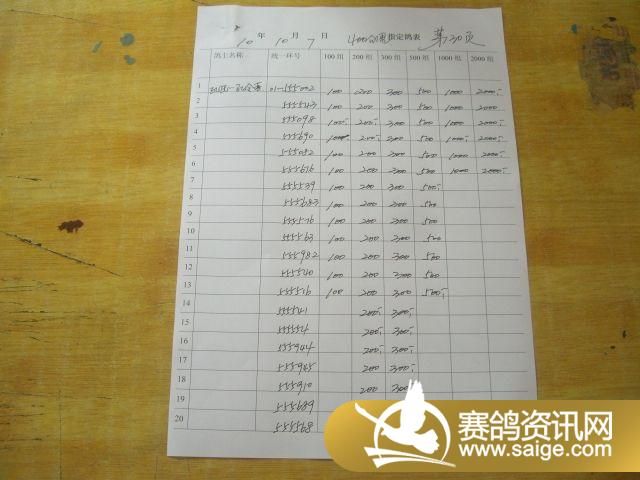 10 年 10 月 7 日 400公里指定鸽表 第130页
鸽主名称 统一环号 100 组 200 组 300 组 500 组 1000 组 2000 组
1 01-555002 100 200 300 500 1000 2000
2 555543 100 200 300 500 1000 2000
3 555098 100 200 300 500 1000 2000
4 555690 100 200 300 500 1000 2000
5 555032 100 200 300 500 1000 2000
6 555676 100 200 300 500 1000 2000
7 555539 100 200 300 500
8 555683 100 200 300 500
9 555576 100 200 300 500
10 555563 100 200 300 500
11 555982 100 200 300 500
12 555540 100 200 300 500
13 555516 100 200 300 500
14 555541 200 300
15 55554 200 300
16 555944 200 300
17 555945 200 300
18 555910 200 300
19 555689
20 555568
赛鸽资讯网
www.saige.com